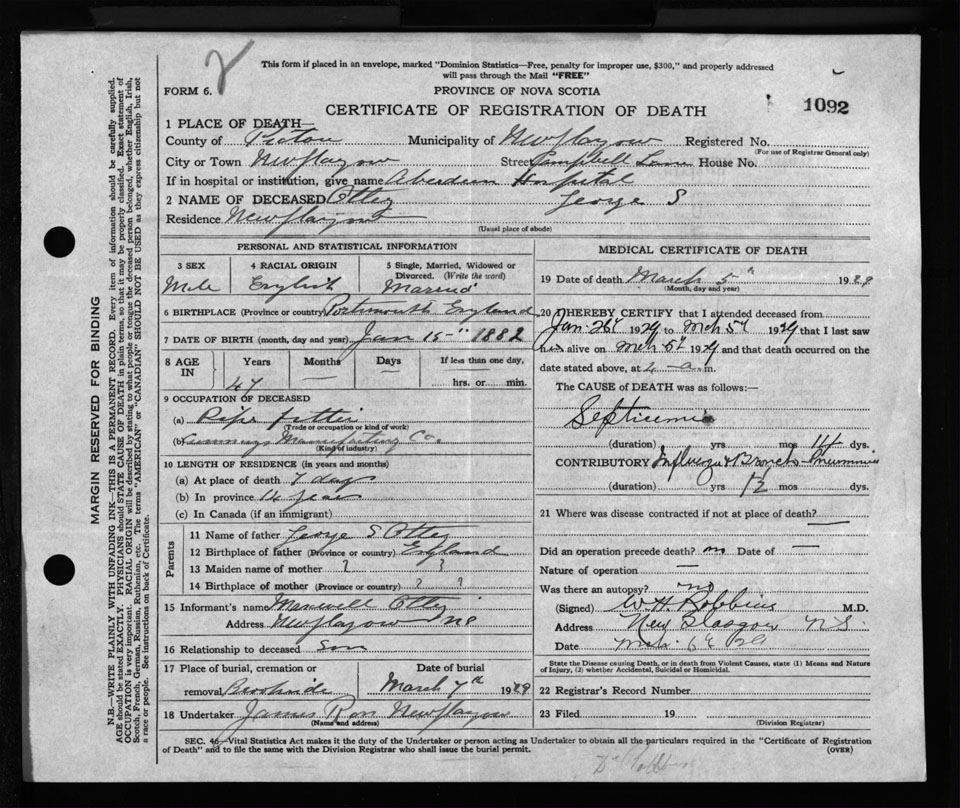 2
This form if placed in an envelope, marked "Dominion Statistics—Free, penalty for improper use, $300," and properly addressed
will pass through the Mail "FREE"
FORM 6.
PROVINCE OF NOVA SCOTIA
CERTIFICATE OF REGISTRATION OF DEATH
1092
1 PLACE OF DEATH—
County of Pictou Municipality of New Glasgow Registered No.
(For use of Registrar General only)
City or Town New Glasgow Street Campbell Lane House No.
If in hospital or institution, give name Aberdeen Hospital
2 NAME OF DECEASED Ottey George S
Residence New Glasgow
(Usual place of abode)
PERSONAL AND STATISTICAL INFORMATION
3 SEX
Male
4 RACIAL ORIGIN
English
5 Single, Married, Widowed or
Divorced. (Write the word)
Married
6 BIRTHPLACE (Province or country) Portsmouth England
7 DATE OF BIRTH (month, day and year) Jan 15th 1882
8 AGE IN
Years Months Days If less than one day,
47 — — hrs. or min.
9 OCCUPATION OF DECEASED
(a) Pipe fitter
(Trade or occupation or kind of work)
(b) Co.
(Kind of industry)
10 LENGTH OF RESIDENCE (in years and months)
(a) At place of death 7 days
(b) In province 14 years
(c) In Canada (if an immigrant)
Parents
11 Name of father George S Ottey
12 Birthplace of father (Province or country) England
13 Maiden name of mother ? ?
14 Birthplace of mother (Province or country) ? ?
15 Informant's name Ottey
Address New Glasgow NS
16 Relationship to deceased Son
17 Place of burial, cremation or Date of burial
removal Brookside March 7th 1929
18 Undertaker James Ross New Glasgow
(Name and address)
MEDICAL CERTIFICATE OF DEATH
19 Date of death March 5th 1929
(Month, day and year)
20 I HEREBY CERTIFY that I attended deceased from
Jan. 26th 1929 to Mch 5th 1929 that I last saw
him alive on Mch 5th 1929 and that death occurred on the
date stated above, at 4 a.m.
The CAUSE of DEATH was as follows:—
Septicemia
(duration) yrs mos 14 dys.
CONTRIBUTORY Influenza & Broncho Pneumonia
(duration) yrs mos dys.
21 Where was disease contracted if not at place of death? —
Did an operation precede death? no Date of —
Nature of operation —
Was there an autopsy? no
(Signed) W. H. Robbins M.D.
Address New Glasgow N.S.
Date Mch 6th
State the Disease causing Death, or in death from Violent Causes, state (1) Means and Nature
of Injury, (2) whether Accidental, Suicidal or Homicidal.
22 Registrar's Record Number
23 Filed 19
(Division Registrar)
SEC. 46—Vital Statistics Act makes it the duty of the Undertaker or person acting as Undertaker to obtain all the particulars required in the "Certificate of Registration
of Death" and to file the same with the Division Registrar who shall issue the burial permit.
(OVER)
Dr Robbins
MARGIN RESERVED FOR BINDING
N.B.—WRITE PLAINLY WITH UNFADING INK—THIS IS A PERMANENT RECORD. Every item of information should be carefully supplied.
AGE should be stated EXACTLY. PHYSICIANS should STATE CAUSE OF DEATH in plain terms, so that it may be properly classified. Exact statement of
OCCUPATION is very important. RACIAL ORIGIN will be described by stating to what people or tongue the deceased person belonged, whether English, Irish,
Scotch, French, German, Russian, Ruthenian, etc. The terms "AMERICAN" or "CANADIAN" SHOULD NOT BE USED as they express citizenship but not
a race or people. See instructions on back of Certificate.